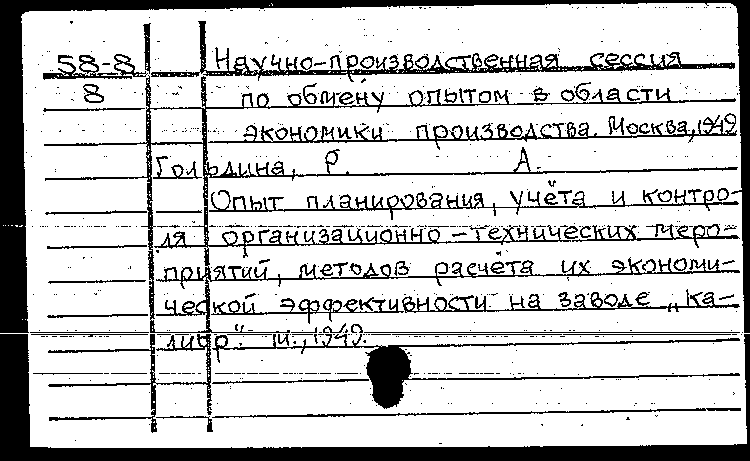 58-8 Научно-производственная сессия
8 по обмену опытом в области
экономики производства. Москва, 1949
Гольдина, Р. А.
Опыт планирования, учёта и контро-
ля организационно-технических меро-
приятий, методов расчёта их экономи-
ческой эффективности на заводе „Ка-
либр". М., 1949.